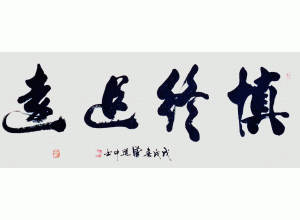 慎終追遠
戊戌春